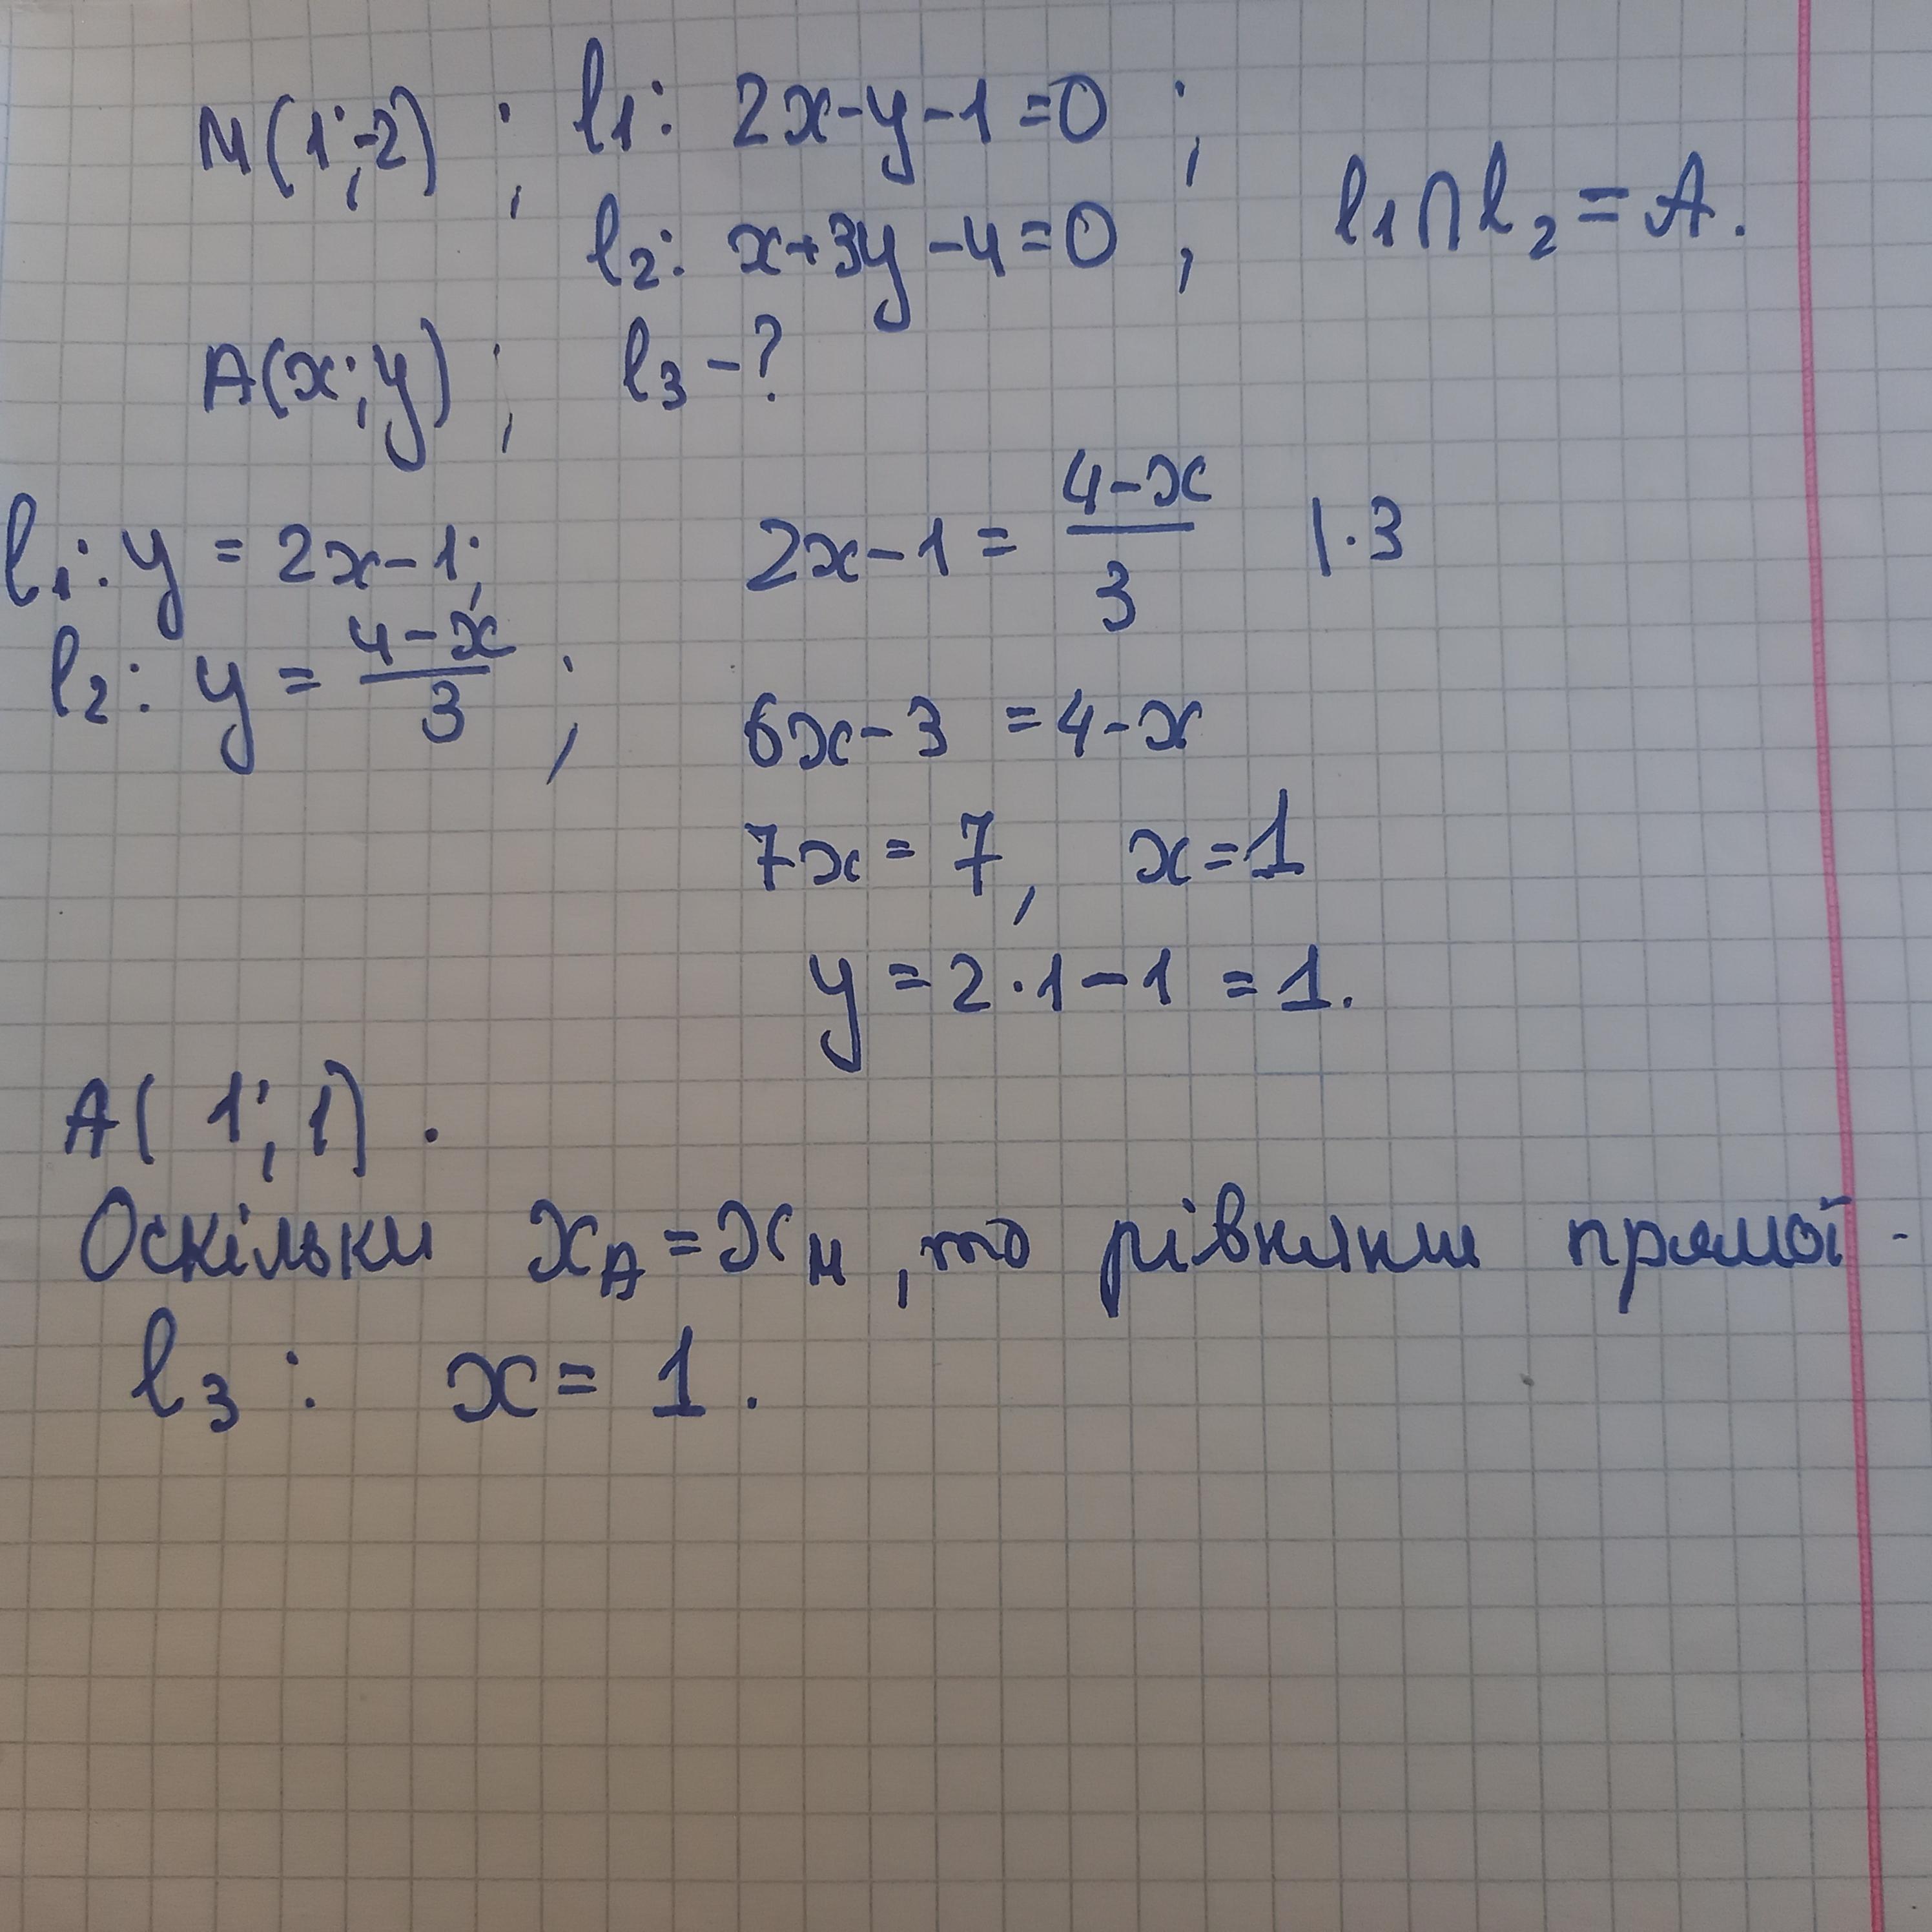 M(1;-2) ; l1: 2x-y-1=0 ;
l2: x+3y-4=0 , l1∩l2=A.
A(x;y) ; l3-?
l1: y=2x-1; 2x-1=(4-x)/3 |·3
l2: y=(4-x)/3 ;
6x-3=4-x
7x=7, x=1
y=2·1-1=1.
A(1;1).
Оскільки xA=xM, то рівняння прямої -
l3: x=1.